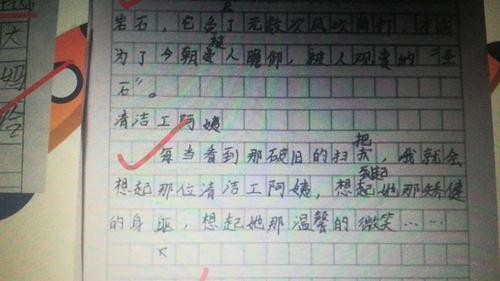 岩石，它了无数次风吹雨打，才成
为了今朝被人瞻仰，被人观赏的“
石”。
清洁工阿姨
每当看到那破旧的扫把，我就会
想起那位清洁工阿姨，想起她那矫健
的身躯，想起她那温馨的微笑……
大
妈